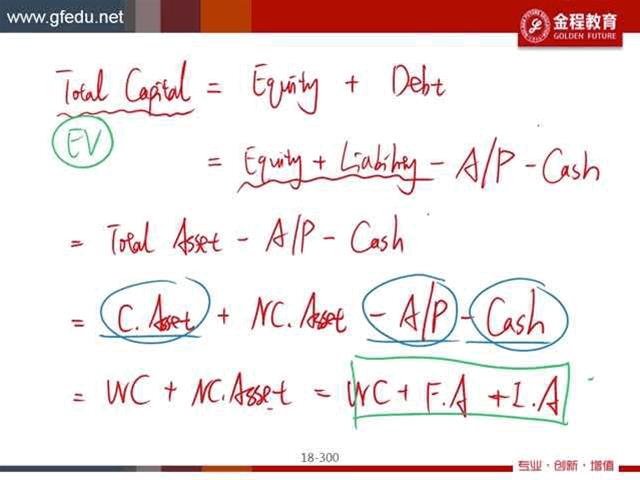 www.gfedu.net
金程教育
GOLDEN FUTURE
Total Capital = Equity + Debt
EV
= Equity + Liability - A/P - Cash
= Total Asset - A/P - Cash
= C. Asset + NC. Asset - A/P - Cash
= WC + NC. Asset = WC + F.A + I.A
18-300
专业·创新·增值